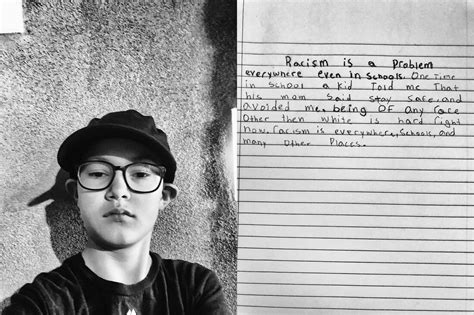 Racism is a Problem
everywhere even in schools. One Time
in School a kid Told me That
his mom Said stay safe.and
avoided me. being OF any race
Other then white is hard right
now. racism is everywhere, Schools, and
many Other Places.